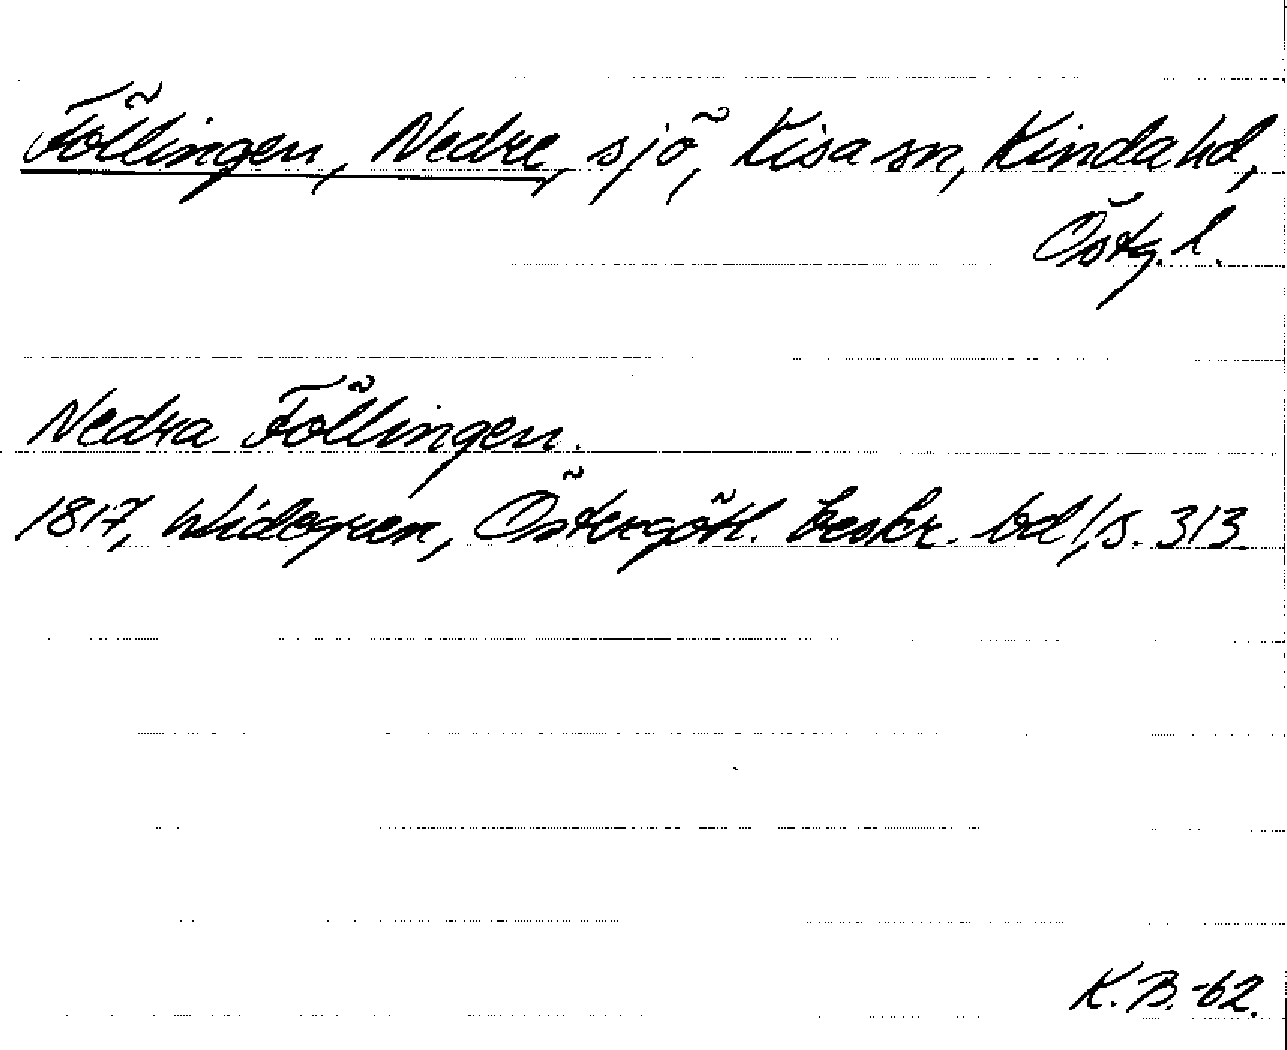 Föllingen, Nedre, sjö, Kisa sn, Kinda hd,
Östg. l.
Nedra Föllingen.
1817, Widegren, Östergötl. beskr. bd 1, s. 313
K. B. -62.